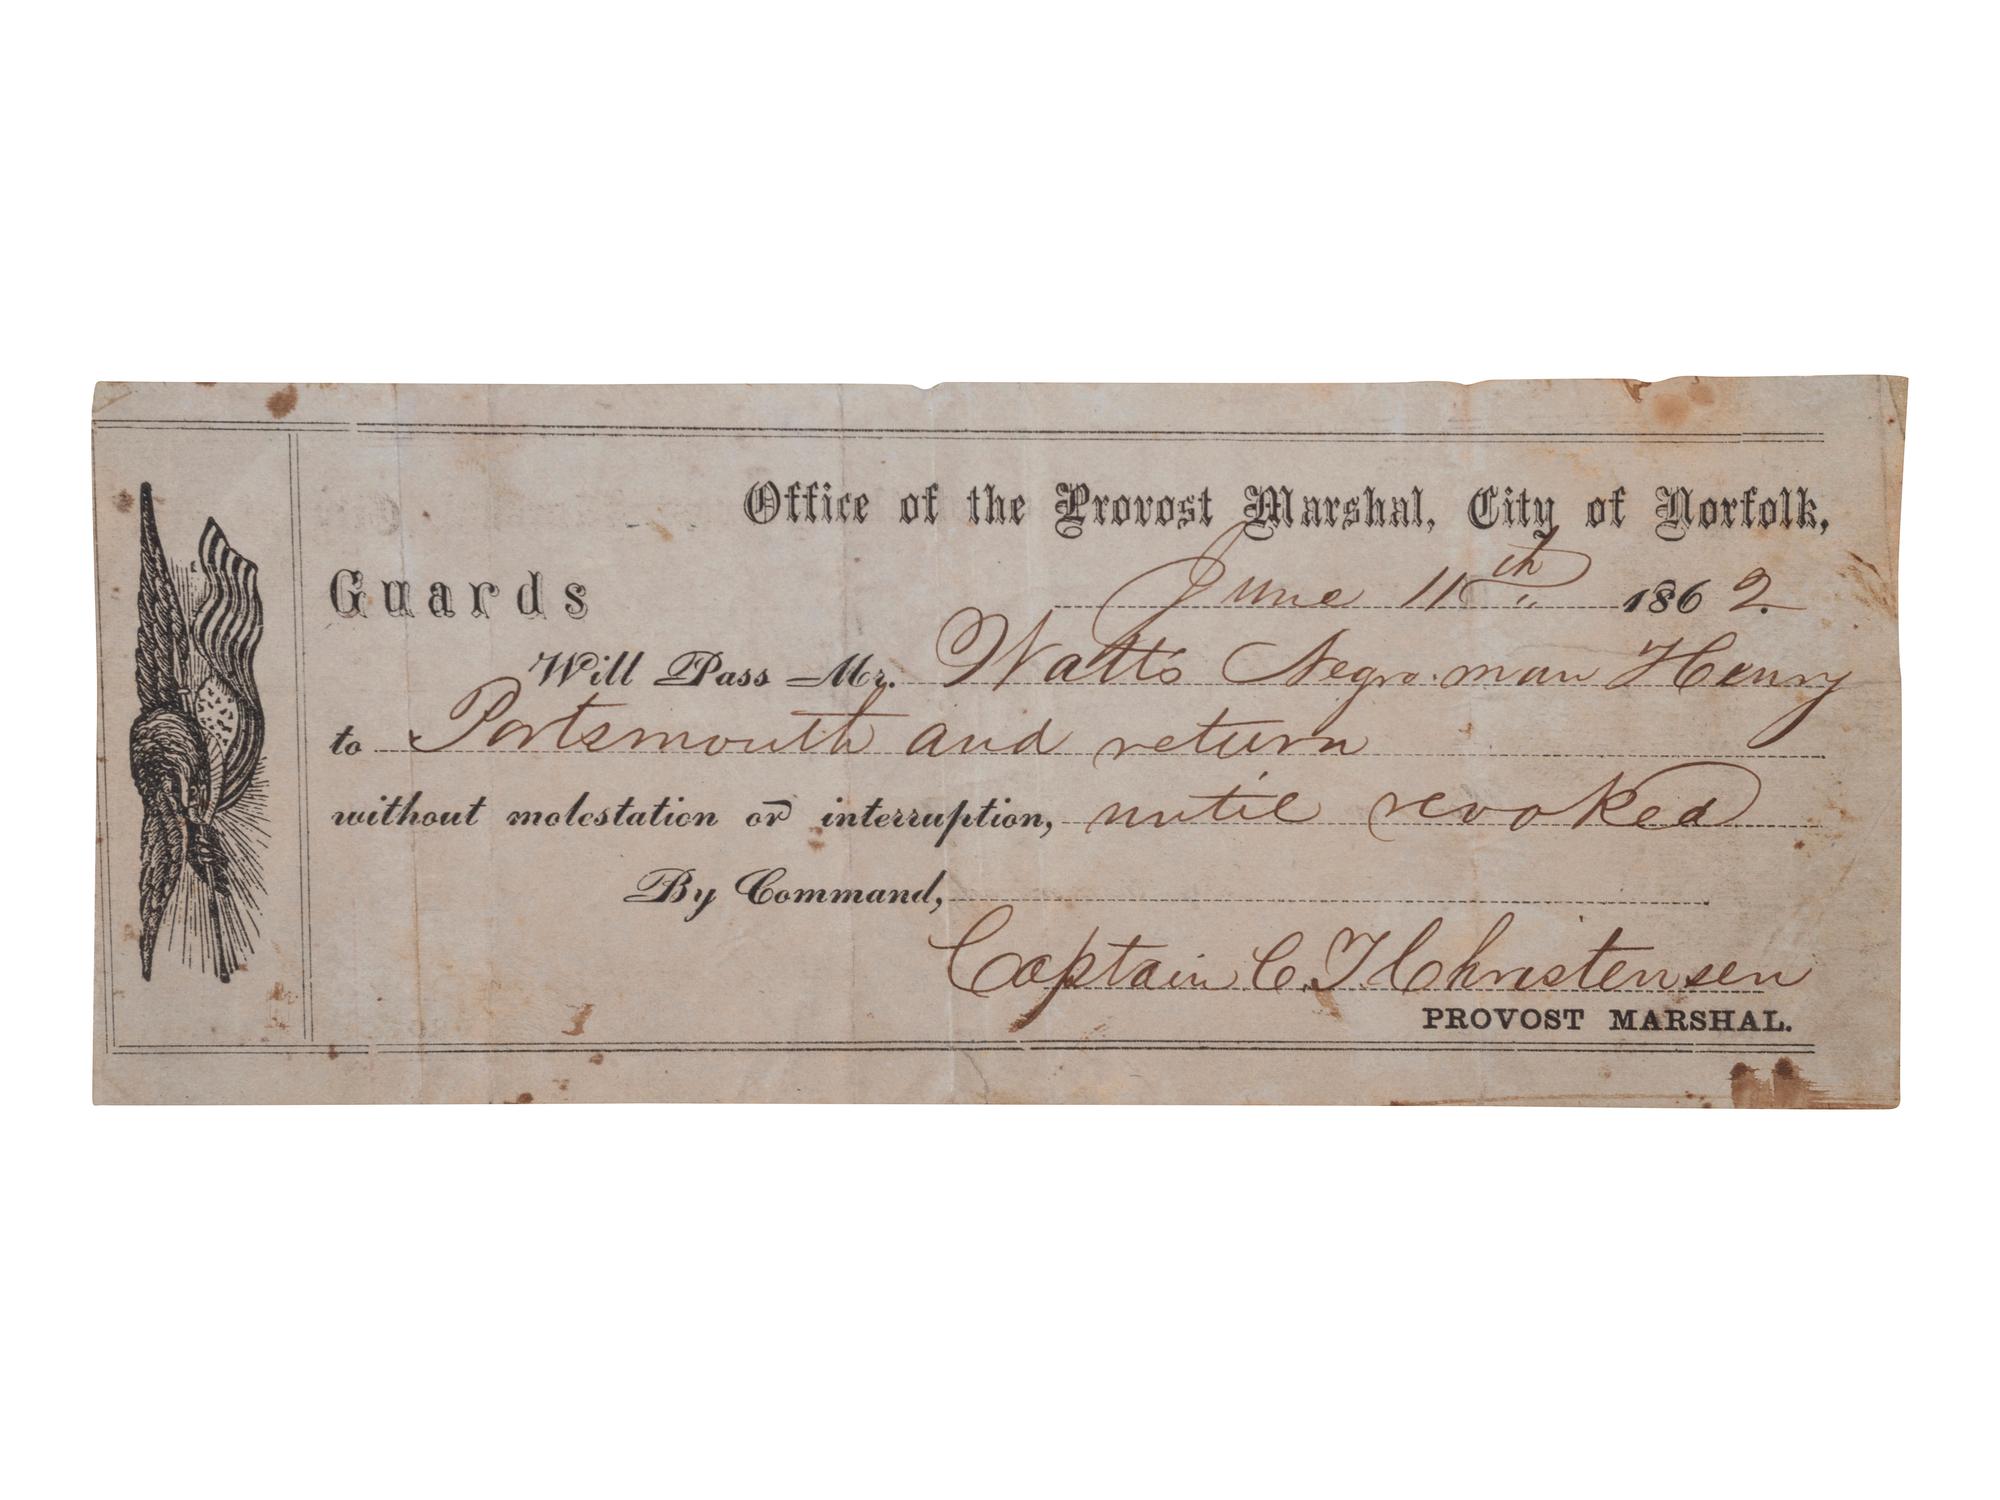 Office of the Provost Marshal, City of Norfolk,
June 11th 1862.
Guards
Will Pass Mr. Watts Negro man Henry
to Portsmouth and return
without molestation or interruption, until revoked
By Command,
Captain C. T. Christensen
PROVOST MARSHAL.